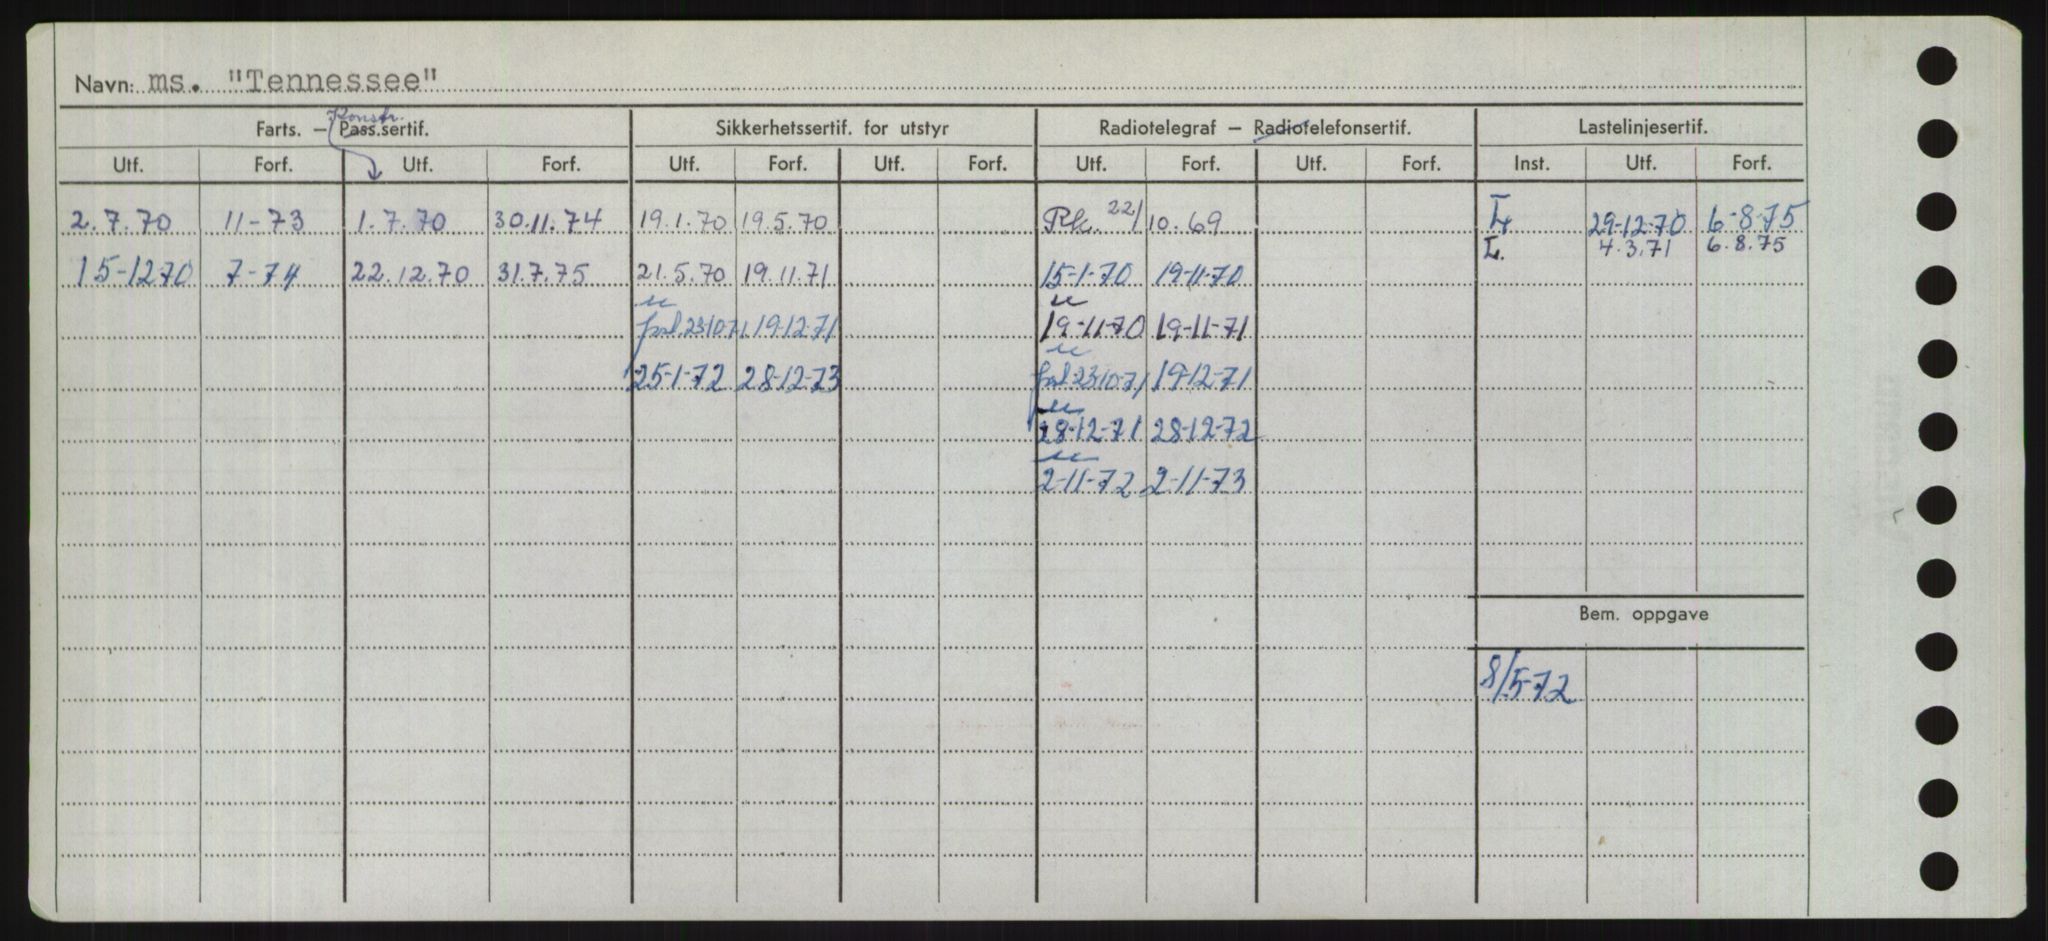 Navn: ms. "Tennessee"
Konstr.
Farts. — Pass.sertif. Sikkerhetssertif. for utstyr Radiotelegraf — Radiotelefonsertif. Lastelinjesertif.
Utf. Forf. Utf. Forf. Utf. Forf. Utf. Forf. Utf. Forf. Utf. Forf. Inst. Utf. Forf.
2.7.70 11-73 1.7.70 30.11.74 19.1.70 19.5.70 Rk. 22/10.69 Ł 29-12-70 6-8-75
Ł. 4.3.71 6.8.75
15-1270 7-74 22.12.70 31.7.75 21.5.70 19.11.71 15-1-70 19-11-70
u u
forl.23-10-71 19-12-71 19-11-70 19-11-71
u
25-1-72 28-12-73 forl.23-10-71 19-12-71
u
28-12-71 28-12-72
u
2-11-72 2-11-73
Bem. oppgave
8/5-72